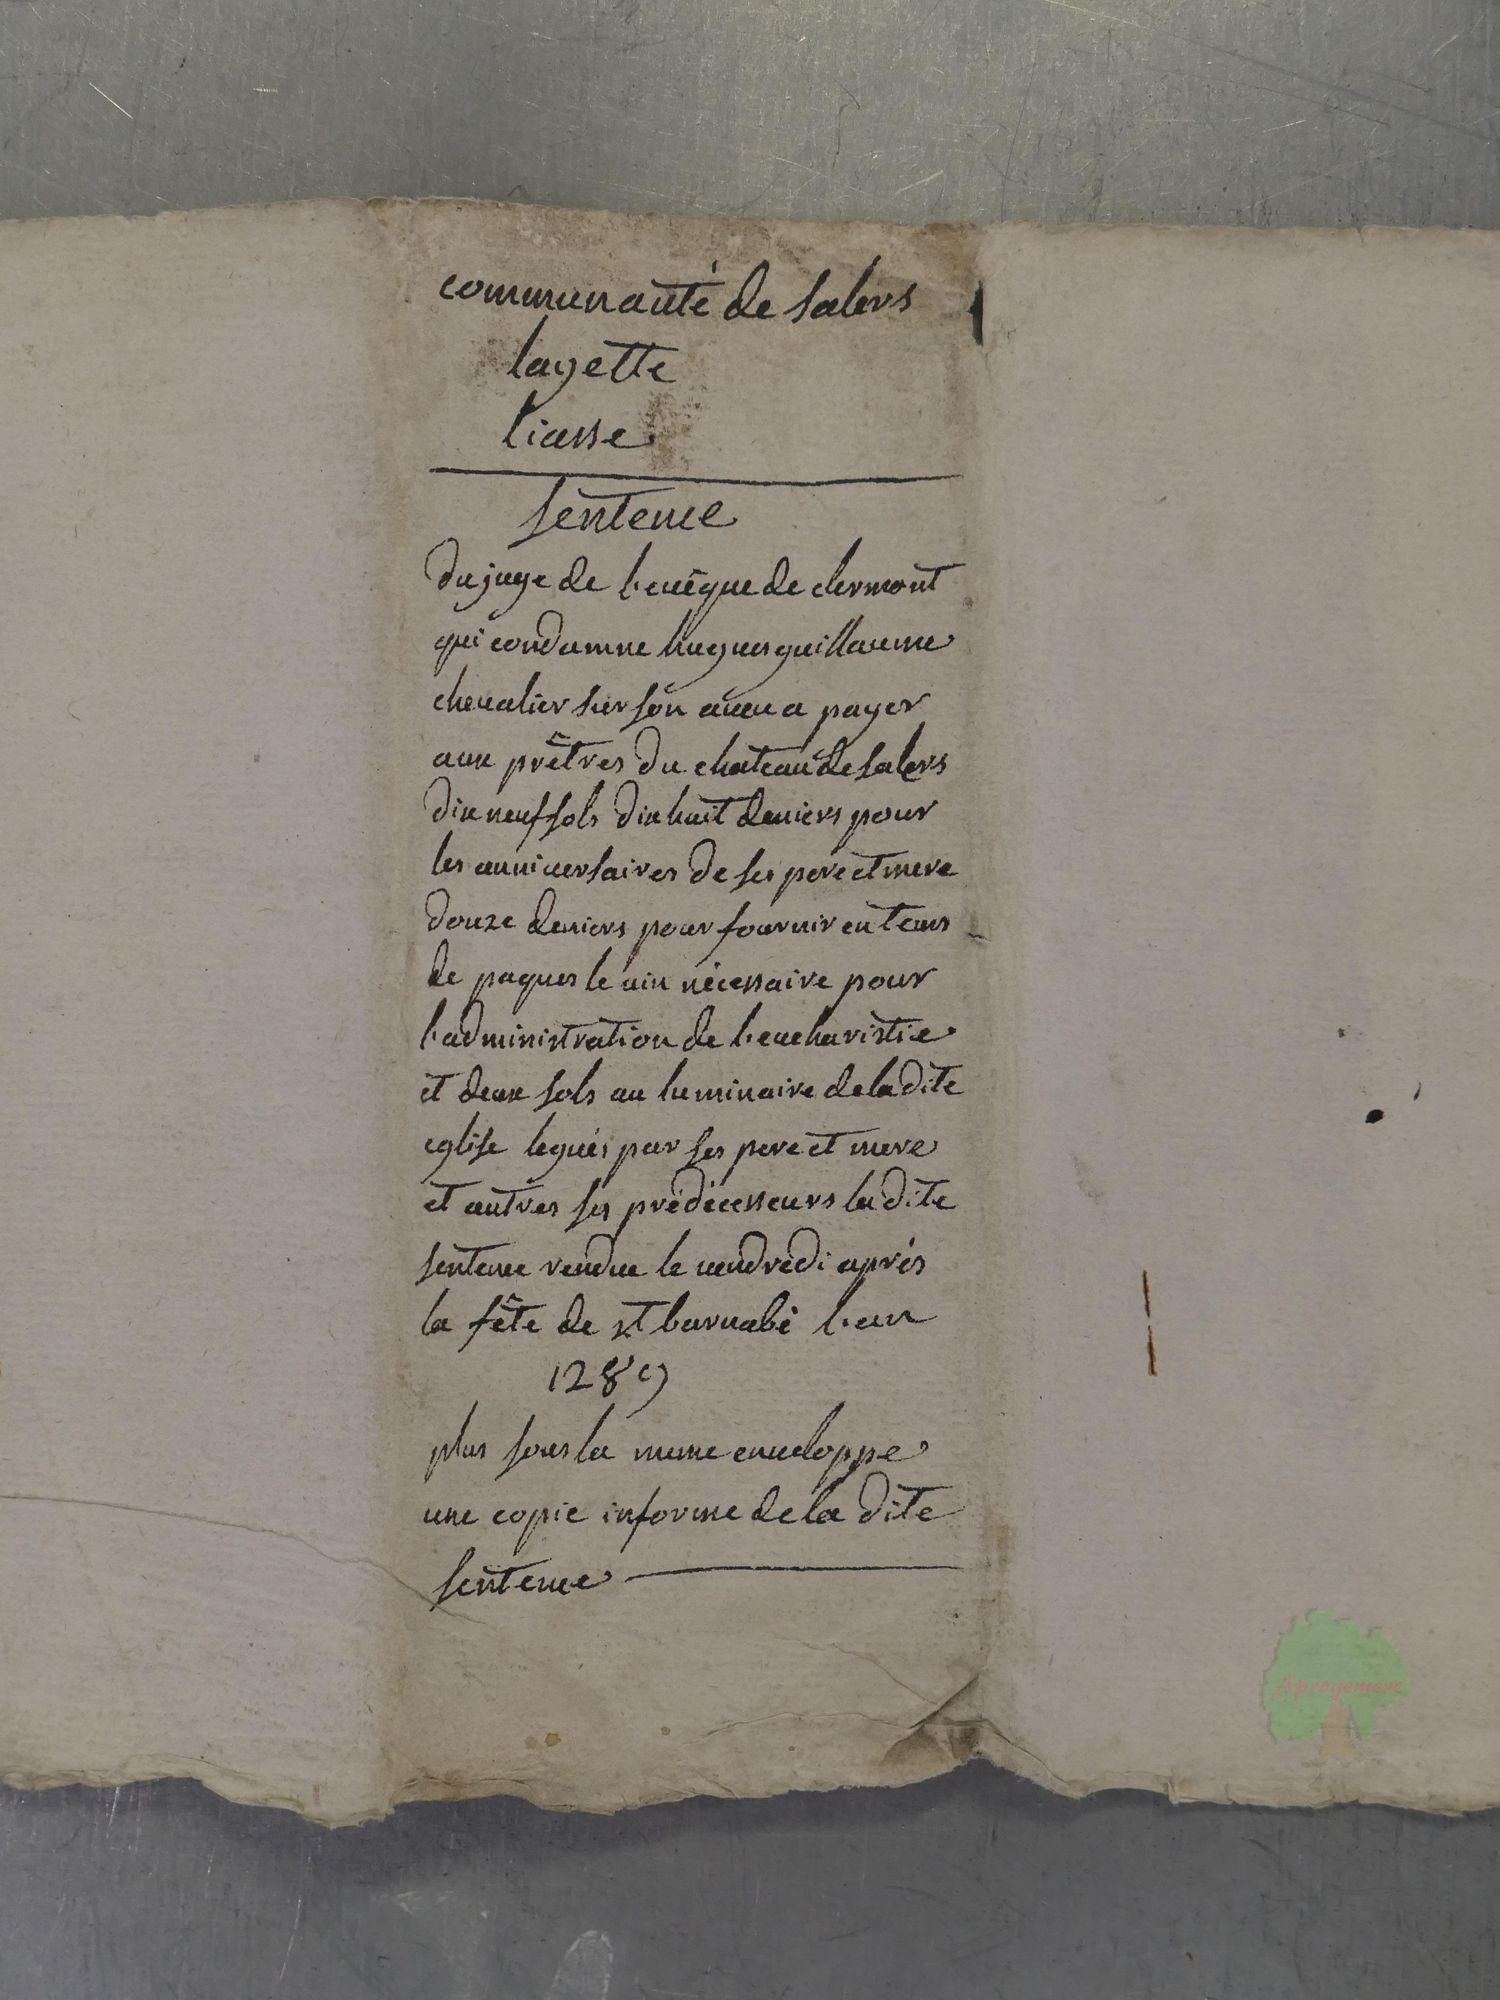 communauté de salers
layette
liasse
sentence
du juge de l'evêque de clermont
qui condamne hugues guillaume
chevalier sur son aveu a payer
aux prêtres du chateau de salers
dix neuf sols dix huit deniers pour
les anniversaires de ses pere et mere
douze deniers pour fournir en tems
de paques le vin nécessaire pour
l'administration de l'eucharistie
et deux sols au luminaire de la dite
eglise legués par ses pere et mere
et autres ses prédécesseurs la dite
sentence rendue le vendredi aprés
la fête de st barnabé l'an
1289
plus sous la meme enveloppe
une copie informe de la dite
sentence
Aprogemere